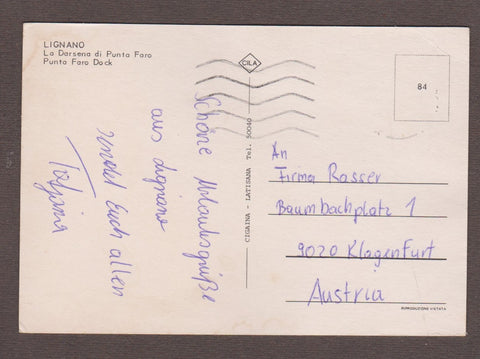 LIGNANO
La Darsena di Punta Faro
Punta Faro Dock
CILA
84
Schöne Urlaubsgrüße
aus Lignano
sendet Euch allen
Tatjana
CIGAINA - LATISANA Tel. 50040
An
Firma Rasser
Baumbachplatz 1
9020 Klagenfurt
Austria
RIPRODUZIONE VIETATA